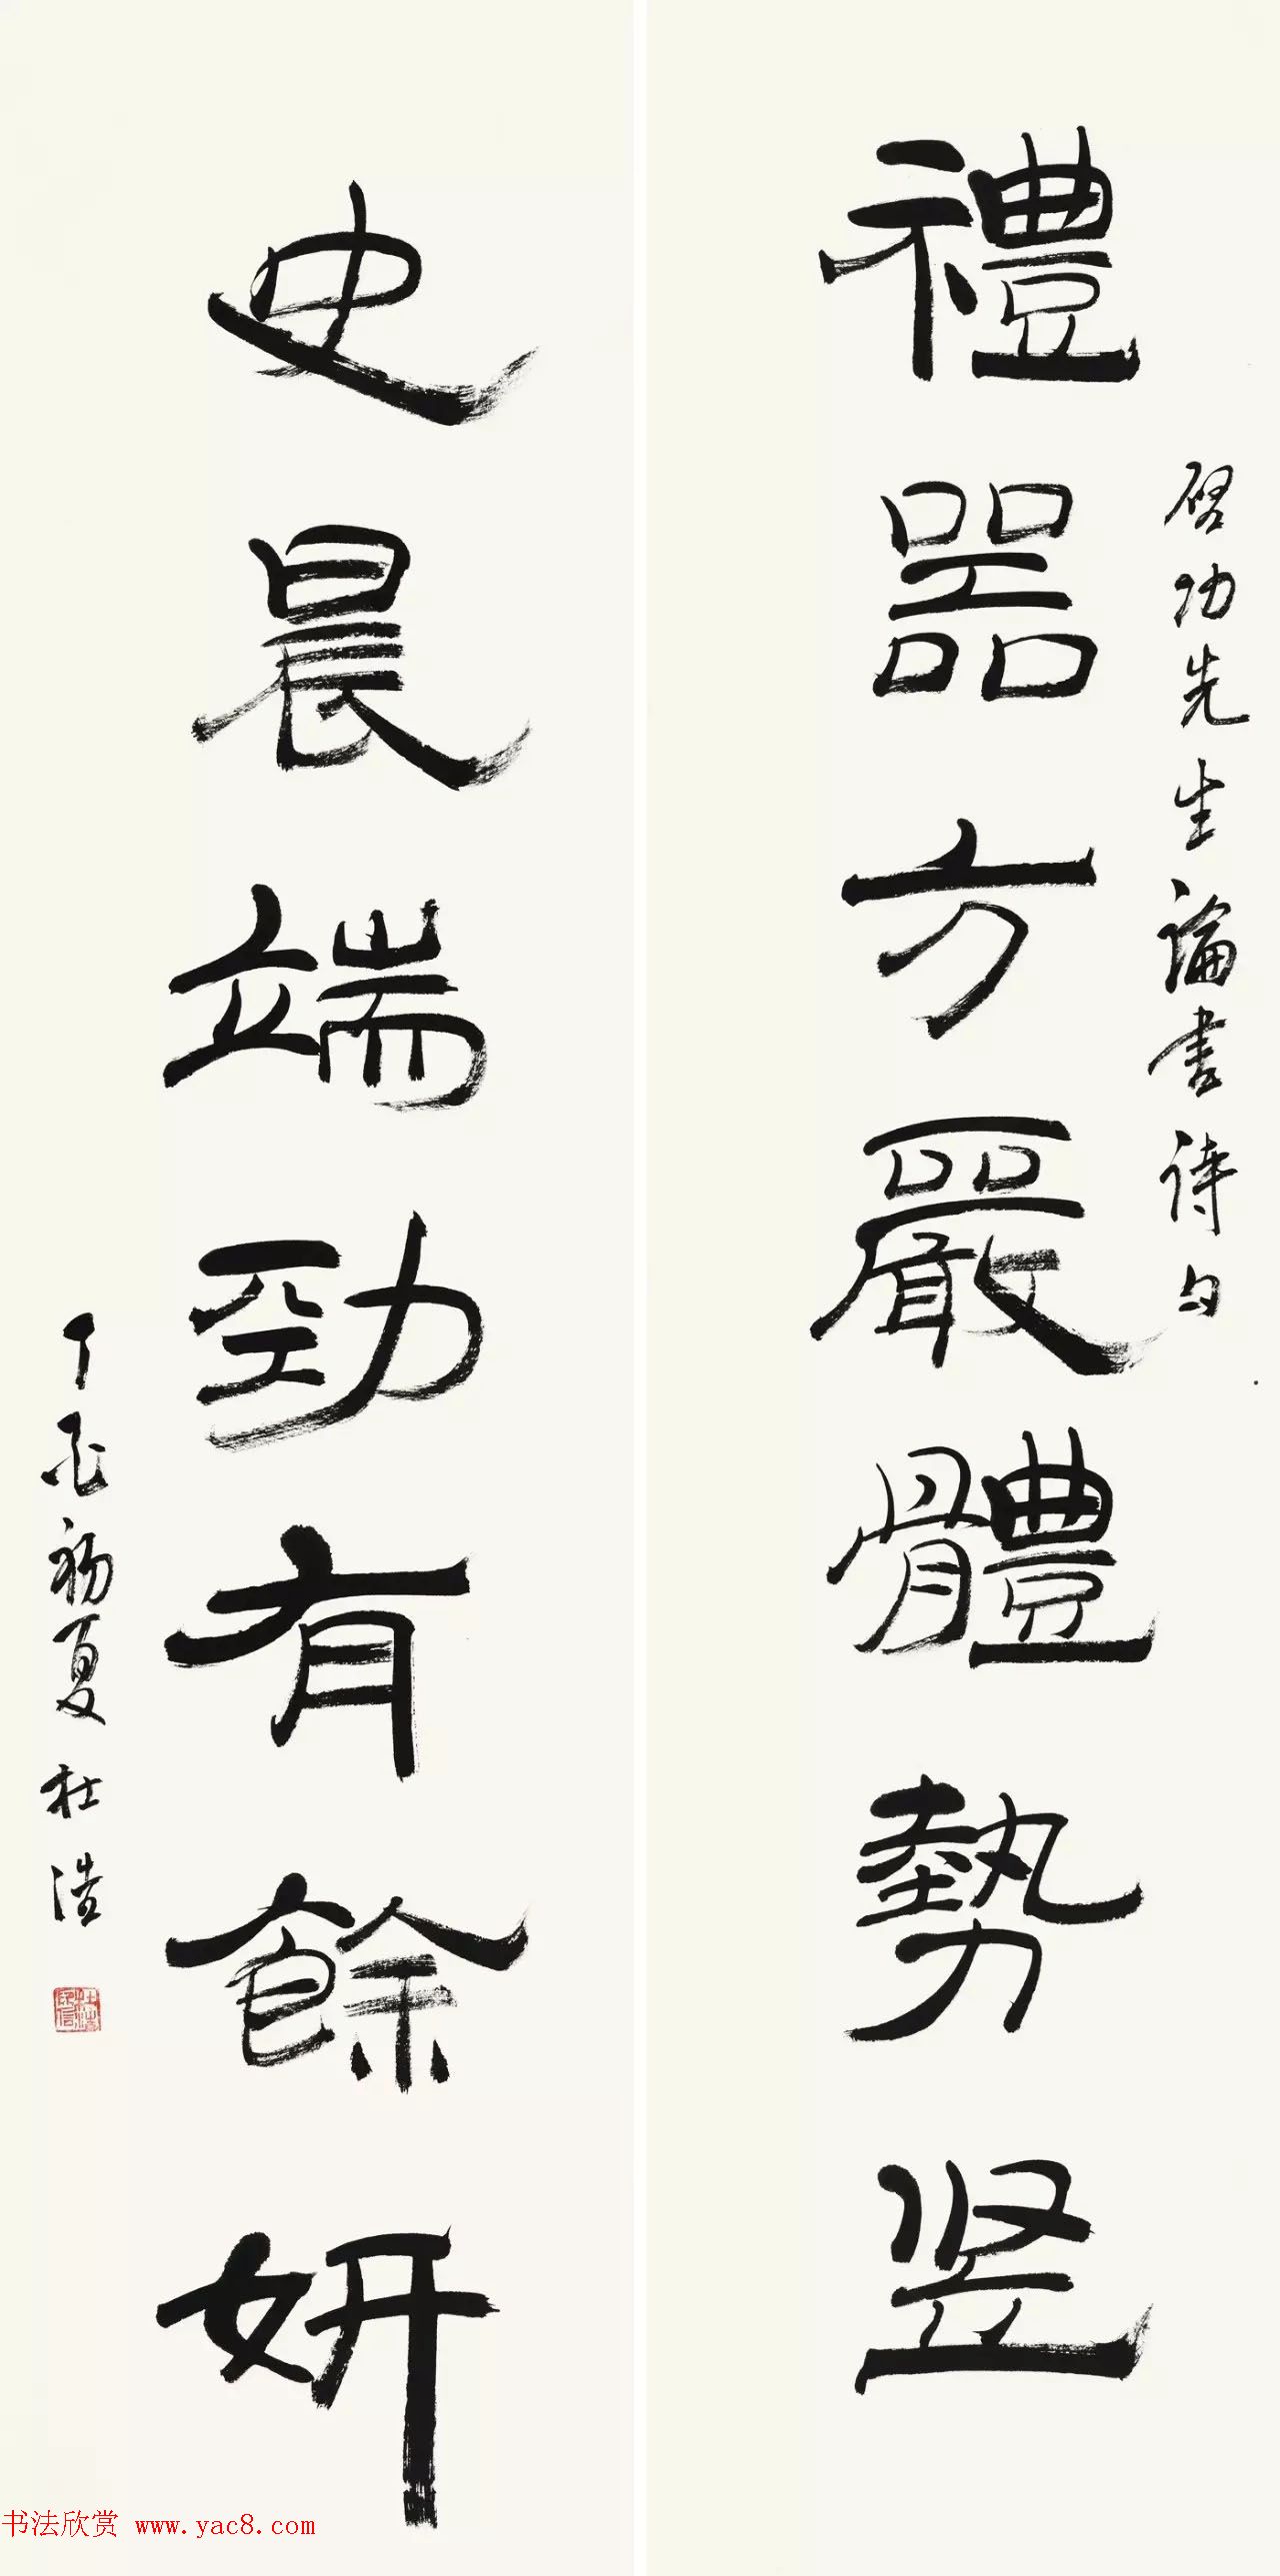 禮器方嚴體勢堅
啓功先生論書詩句
史晨端勁有餘妍
丁酉初夏杜浩
书法欣赏 www.yac8.com